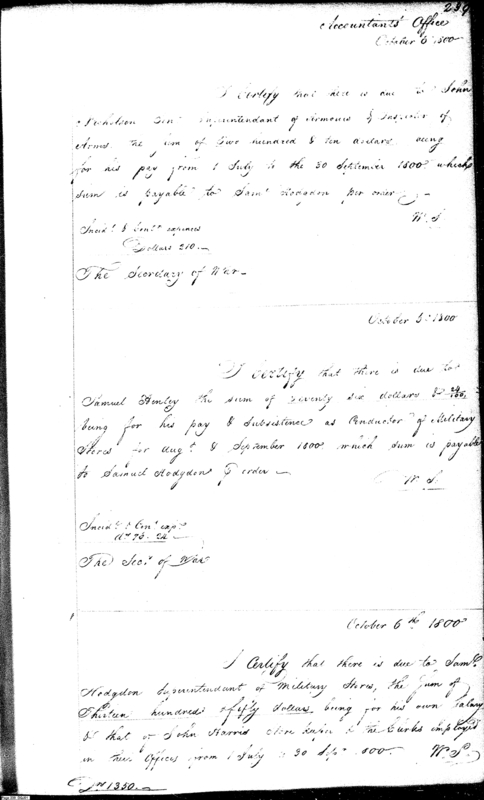 239
Accountants' Office
October 6 1800
I Certify that there is due to John
Nicholson Genl Superintendant of Armories & Inspector of
Arms the sum of Two hundred & ten dollars being
for his pay from 1 July to the 30 September 1800 which
sum is payable to Saml Hodgdon per order
W. S.
Incidl & Contt expences
Dollars 210.
The Secretary of War
October 5th 1800
I Certify that there is due to
Samuel Henley the sum of seventy six dollars & 24/100
being for his pay & Subsistence as Conductor of Military
Stores for Augt & September 1800 which sum is payable
to Samuel Hodgdon p order
W. S.
Incidl & Cont exps
24
The Secy of War
October 6th 1800
I Certify that there is due to Saml
Hodgdon Superintendant of Military Stores, the Sum of
Thirteen hundred & fifty dollars being for his own Salary
& that of John Harris Store keeper & the Clerks employed
in their Offices from 1 July to 30 Sepr 1800. W. S.
Drs 1350.